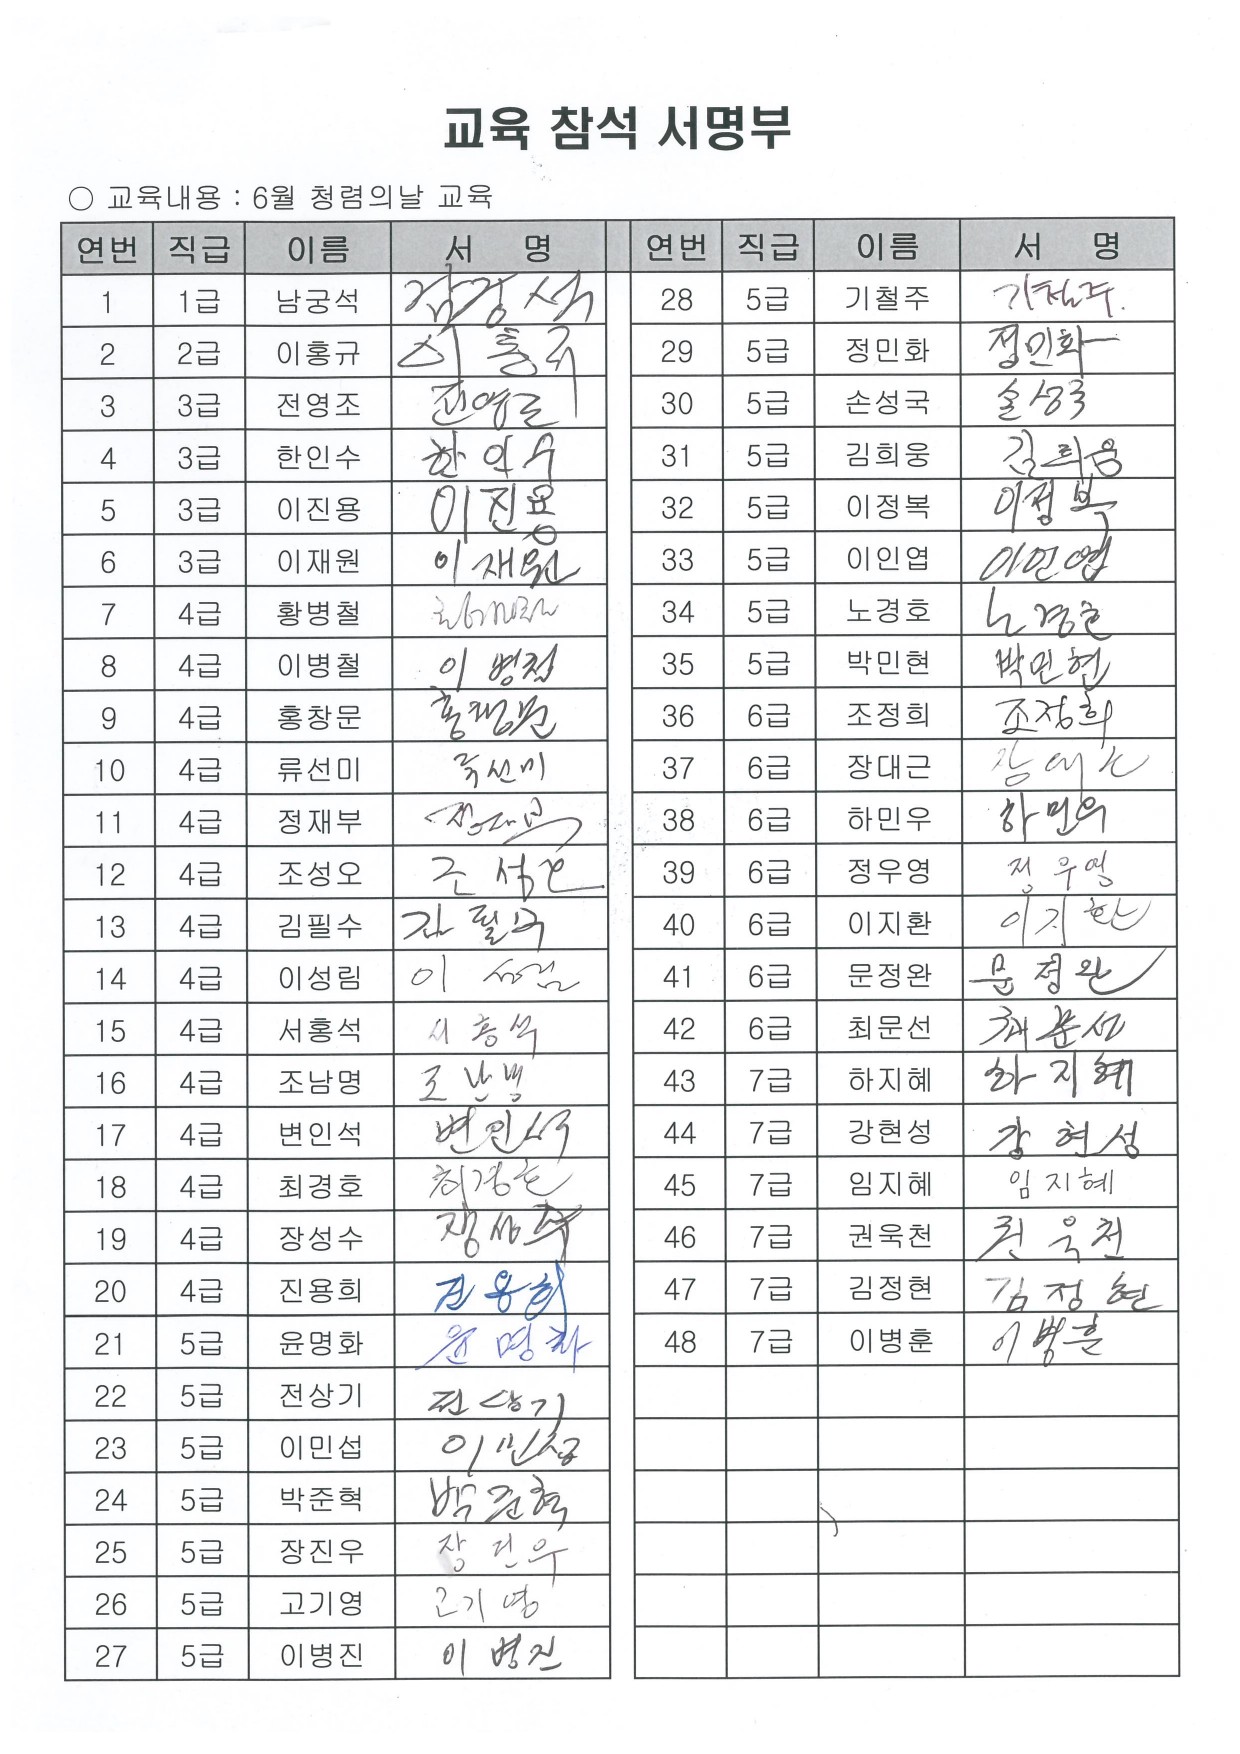 교육 참석 서명부
○ 교육내용 : 6월 청렴의날 교육
연번 직급 이름 서 명
1 1급 남궁석
2 2급 이홍규 이홍규
3 3급 전영조 전영조
4 3급 한인수 한인수
5 3급 이진용 이진용
6 3급 이재원 이재원
7 4급 황병철
8 4급 이병철 이병철
9 4급 홍창문 홍창문
10 4급 류선미 류선미
11 4급 정재부 정재부
12 4급 조성오 조성오
13 4급 김필수 김필수
14 4급 이성림 이성림
15 4급 서홍석 서홍석
16 4급 조남명 조남명
17 4급 변인석 변인석
18 4급 최경호 최경호
19 4급 장성수 장성수
20 4급 진용희 진용희
21 5급 윤명화 윤명화
22 5급 전상기 전상기
23 5급 이민섭 이민섭
24 5급 박준혁 박준혁
25 5급 장진우 장진우
26 5급 고기영 고기영
27 5급 이병진 이병진
연번 직급 이름 서 명
28 5급 기철주 기철주.
29 5급 정민화 정민화
30 5급 손성국 손성국
31 5급 김희웅 김희웅
32 5급 이정복 이정복
33 5급 이인엽 이인엽
34 5급 노경호 노경호
35 5급 박민현 박민현
36 6급 조정희 조정희
37 6급 장대근 장대근
38 6급 하민우 하민우
39 6급 정우영 정우영
40 6급 이지환 이지환
41 6급 문정완 문정완
42 6급 최문선 최문선
43 7급 하지혜 하지혜
44 7급 강현성 강현성
45 7급 임지혜 임지혜
46 7급 권욱천 권욱천
47 7급 김정현 김정현
48 7급 이병훈 이병훈